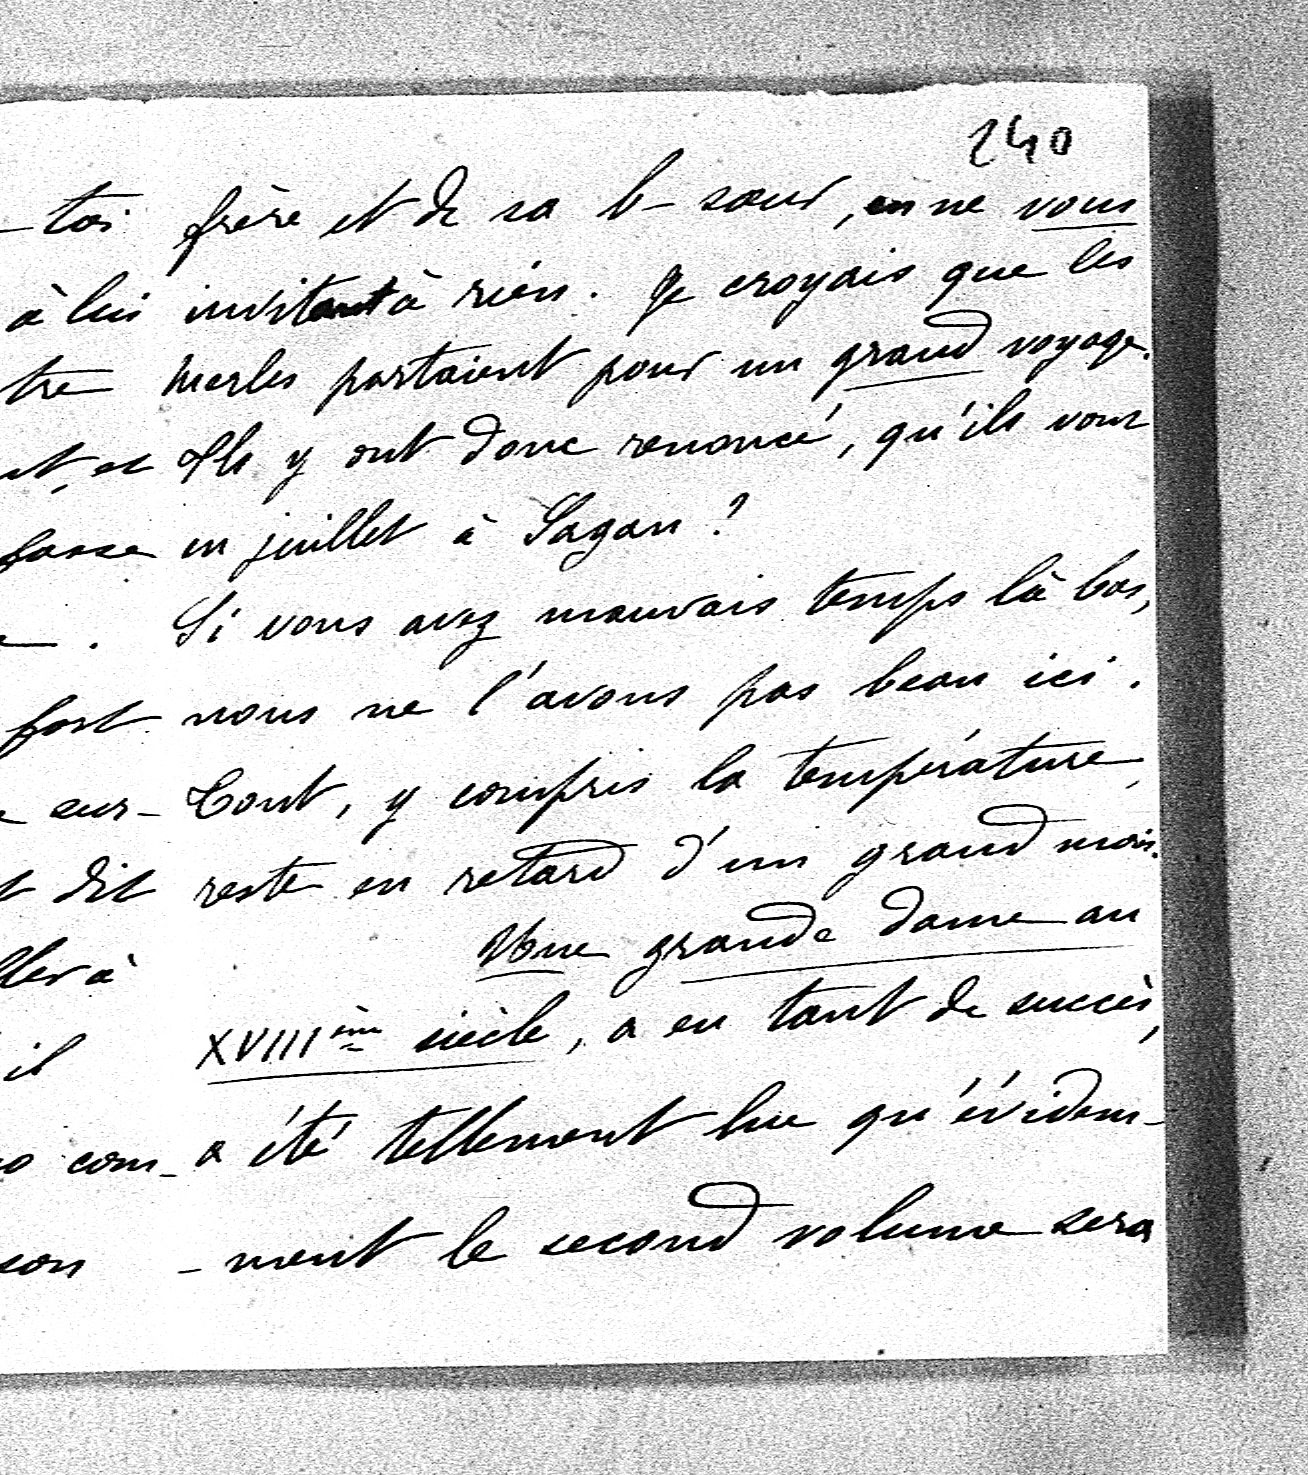 240
-toi
à lui
tre
nt, et
fasse
fort
sur-
dit
ller à
il
com-
son
frère et de sa b-sœur, en ne vous
invitant à rien. Je croyais que les
Merles partaient pour un grand voyage.
Ils y ont donc renoncé, qu'ils vont
en juillet à Sagan?
Si vous avez mauvais temps là bas,
nous ne l'avons pas beau ici.
Tout, y compris la température,
reste en retard d'un grand mois.
Une grande dame au
XVIIIème siècle, a eu tant de succès,
a été tellement lue qu'évidem-
-ment le second volume sera